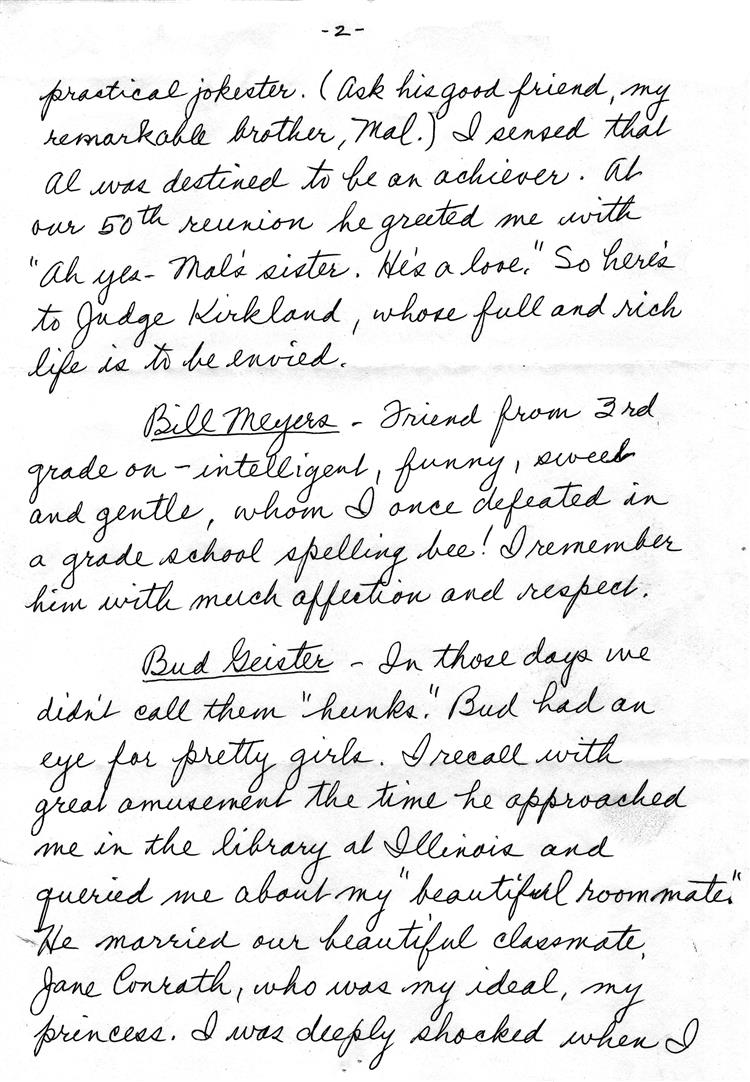 -2-
practical jokester. (Ask his good friend, my
remarkable brother, Mal.) I sensed that
Al was destined to be an achiever. At
our 50th reunion he greeted me with
"Ah yes - Mal's sister. He's a love." So here's
to Judge Kirkland, whose full and rich
life is to be envied.
Bill Meyers - Friend from 3rd
grade on - intelligent, funny, sweet
and gentle, whom I once defeated in
a grade school spelling bee! I remember
him with much affection and respect.
Bud Geister - In those days we
didn't call them "hunks." Bud had an
eye for pretty girls. I recall with
great amusement the time he approached
me in the library at Illinois and
queried me about my "beautiful roommate."
He married our beautiful classmate,
Jane Conrath, who was my ideal, my
princess. I was deeply shocked when I